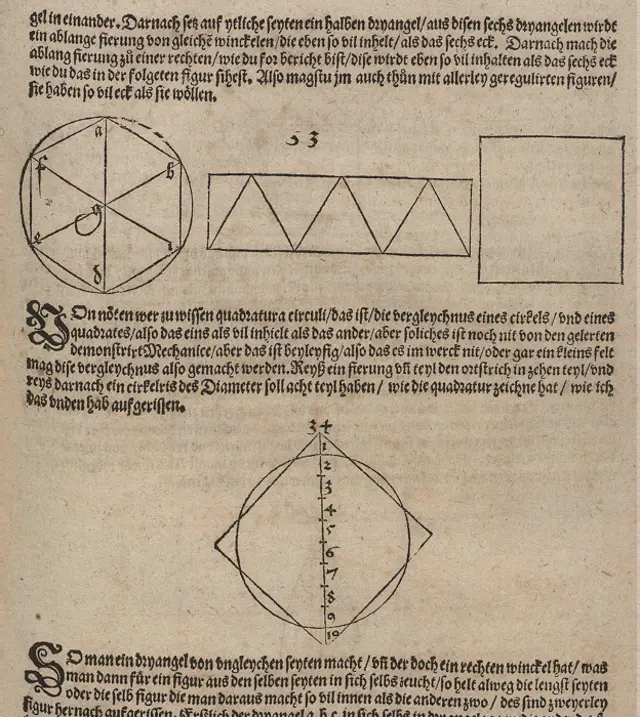 gel in einander. Darnach setz auf ytliche seyten ein halben dryangel/aus disen sechs dryangelen wirdt
ein ablange fierung von gleichē winckelen/die eben so vil inhelt/als das sechs eck. Darnach mach die
ablang fierung zů einer rechten/wie du for bericht bist/dise wirdt eben so vil inhalten als das sechs eck
wie du das in der folgeten figur sihest. Also magstu jm auch thůn mit allerley geregulirten figuren/
sie haben so vil eck als sie wöllen.
33
a
f b
g
e i
d
VOn nöten wer zu wissen quadratura circuli/das ist/die vergleychnus eines cirkels/vnd eines
quadrates/also das eins als vil inhielt als das ander/aber soliches ist noch nit von den gelerten
demonstrirt Mechanice/aber das ist beyleyfig/also das es im werck nit/oder gar ein kleins felt
mag dise vergleychnus also gemacht werden. Reyß ein fierung vñ teyl den ortstrich in zehen teyl/vnd
reys darnach ein cirkelris des Diameter soll acht teyl haben/wie die quadratur zeichne hat/wie ich
das vnden hab aufgerissen.
34
1
2
3
4
5
6
7
8
9
10
SO man ein dryangel von vngleychen seyten macht/vñ der doch ein rechten winckel hat/was
man dann für ein figur aus den selben seyten in sich selbs zeucht/so helt alweg die lengst seyten
oder die selb figur die man daraus macht so vil innen als die anderen zwo/des sind zweyerley
figur hernach aufgerissen. Erstlich der dryangel a b c in sich selbs